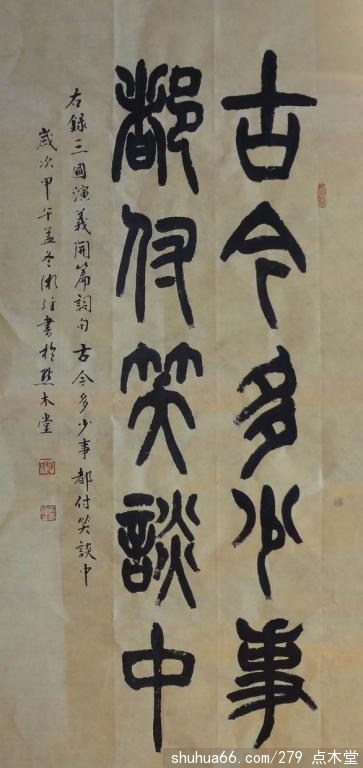 古今多少事
都付笑談中
右錄三國演義開篇詞句古今多少事都付笑談中
歲次甲午孟冬湘維書於點木堂
shuhua66.com/279 点木堂